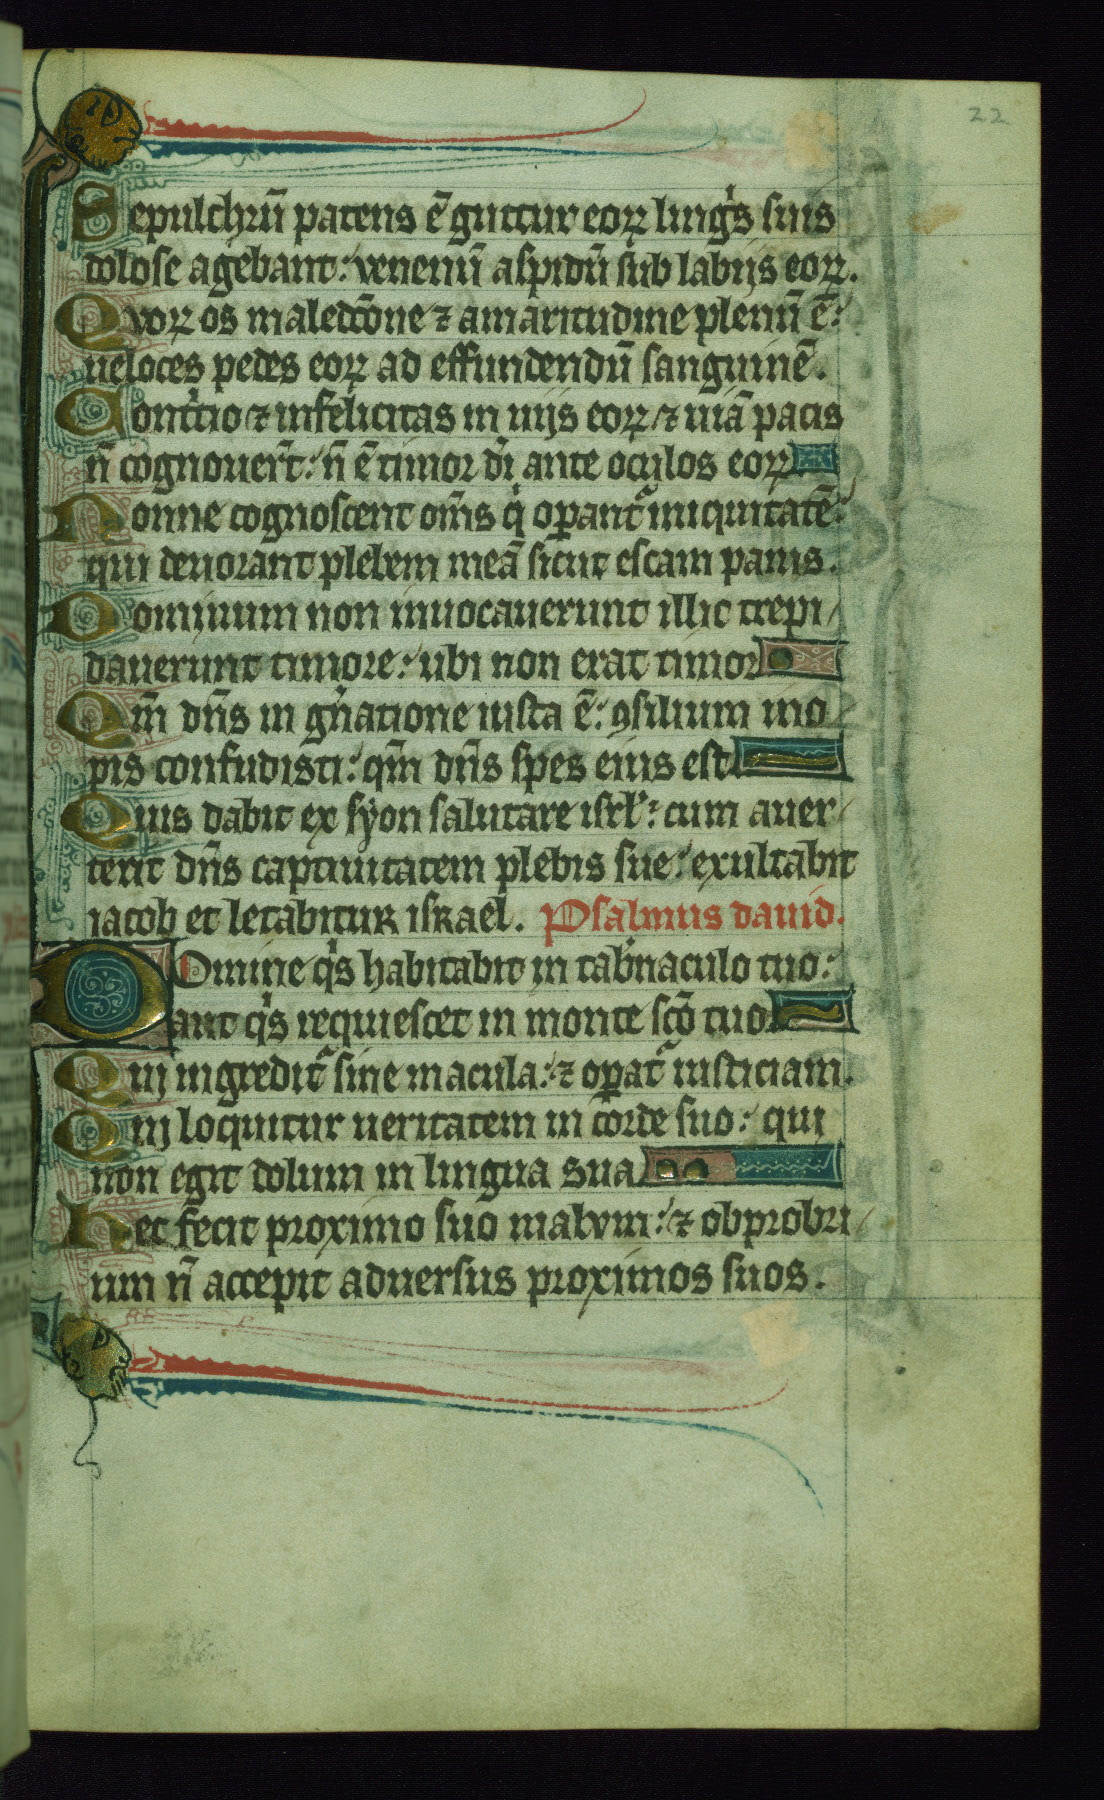 22
Sepulchrū patens ē guttur eoꝝ lingͥs suis
dolose agebant: venenū aspidū sub labijs eoꝝ.
Qvoꝝ os maledc̄one ⁊ amaritudine plenū ē:
ueloces pedes eoꝝ ad effundendū sanguinē.
Contͥtio ⁊ infelicitas in uijs eoꝝ / ⁊ uiā pacis
n̄ cognouer̄t: n̄ ē timor dī ante oculos eoꝝ
Nonne cognoscent om̄s qͥ oꝑant᷑ iniquitatē:
qui deuorant plebem meā sicut escam panis.
Dominum non inuocauerunt illic trepi/
dauerunt timore: ubi non erat timor
Qm̄ dn̄s in gn̄atione iusta ē: ꝯsilium ino
pis confudisti: qm̄ dn̄s spes eius est
Quis dabit ex syon salutare isrl̕: cum auer/
terit dn̄s captiuitatem plebis sue: exultabit
iacob et letabitur israel. Psalmus dauid.
Domine qͥs habitabit in tab̕naculo tuo:
aut qͥs requiescet in monte scō tuo
Qui ingredit᷑ sine macula: ⁊ oꝑat᷑ iusticiam.
Qui loquitur ueritatem in corde suo: qui
non egit dolum in lingua sua
Nec fecit proximo suo malvm: ⁊ obprobri/
um n̄ accepit aduersus proximos suos.